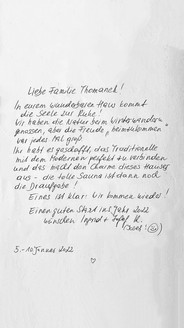 Liebe Familie Thomanek!
In eurem wunderbaren Haus kommt
die Seele zur Ruhe!
Wir haben die Natur beim Winterwandern
genossen, aber die Freude, "heimzukommen"
war jedes Mal groß.
Ihr habt es geschafft, das Traditionelle
mit dem Modernen perfekt zu verbinden
und das macht den Charme dieses Hauses
aus - die tolle Sauna ist dann noch
die Draufgabe!
Eines ist klar: Wir kommen wieder!
Einen guten Start ins Jahr 2022
wünschen Ingrid +
5.-10. Januar 2022